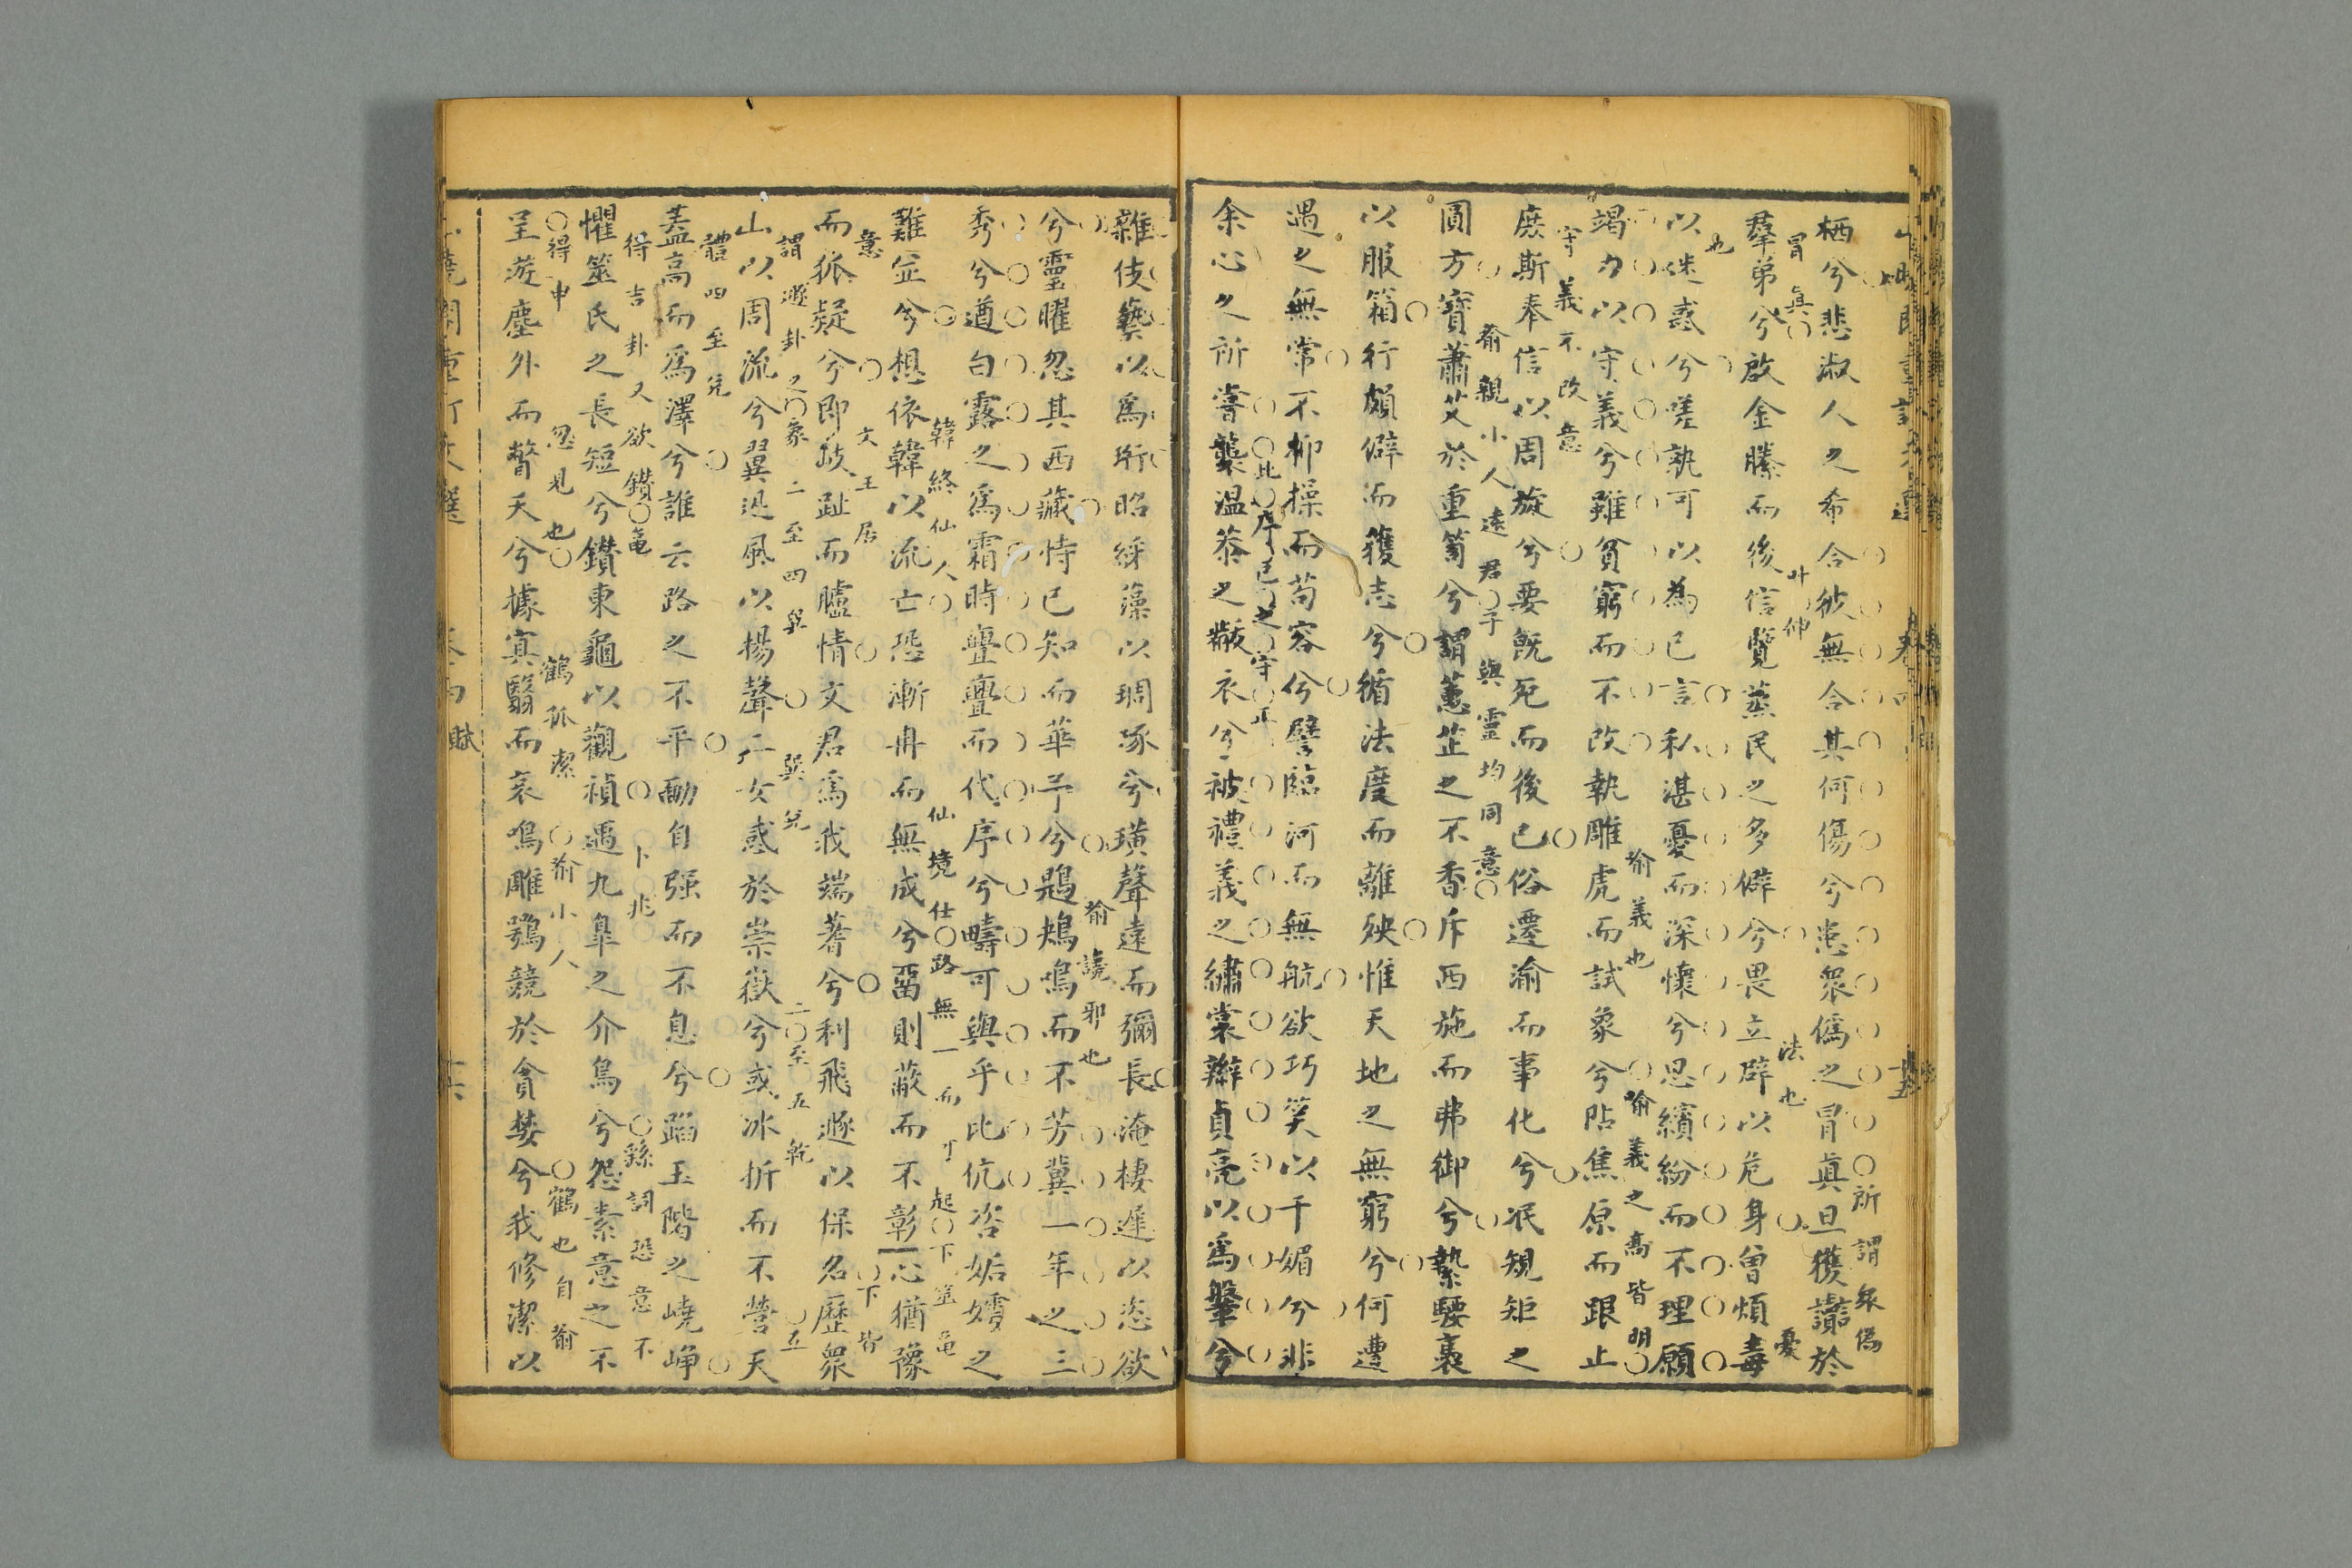 栖兮悲淑人之希合彼無合其何傷兮患衆僞之冒眞旦獲讟於
所謂衆僞
冒眞
羣弟兮啟金縢而後信覽蒸民之多僻兮畏立辟以危身曾煩毒
法也
憂也
以迷惑兮嗟孰可以爲已言私湛憂而深懷兮思繽紛而不理願
竭力以守義兮雖貧窮而不改執雕虎而試象兮阽焦原而跟止
喻義也
喻義之高皆明
守義不改意
庶斯奉信以周旋兮要旣死而後已俗遷渝而事化兮泯規矩之
圓方寶蕭艾於重笥兮謂蕙芷之不香斥西施而弗御兮縶騕褭
喻親小人遠君子與靈均同意
以服箱行頗僻而獲志兮循法度而離殃惟天地之無窮兮何遭
遇之無常不抑操而苟容兮譬臨河而無航欲巧笑以干媚兮非
余心之所嘗襲温恭之黻衣兮被禮義之繡裳辮貞亮以爲鞶兮
此序己之守正
雜伎藝以爲珩昭綵藻以琱琢兮璜聲遠而彌長淹棲遲以恣欲
兮靈曜忽其西藏恃已知而華予兮鶗鴂鳴而不芳冀一年之三
喻讒邪也
秀兮遒白露之爲霜時亹亹而代序兮疇可與乎比伉咨妬嫮之
難竝兮想依韓以流亡恐漸冉而無成兮畱則蔽而不彰心猶豫
韓終仙人
仙境仕路無一而可起下筮龜
意
而狐疑兮卽岐趾而臚情文君爲我端蓍兮利飛遯以保名歷衆
文王居
下皆
謂遯卦之象二至四巽
山以周流兮翼迅風以揚聲二女惑於崇嶽兮或冰折而不營天
巽兌
二至五乾
五
體四至兌
蓋高而爲澤兮誰云路之不平勔自强而不息兮蹈玉階之嶢崢
得吉卦又欲鑽龜
卜兆
繇詞恐意不
懼筮氏之長短兮鑽東龜以觀禎遇九臯之介鳥兮怨素意之不
得申
忽見也
鶴孤潔
喻小人
鶴也自喻
呈遊塵外而瞥天兮據寘翳而哀鳴雕鶚競於貪婪兮我修潔以
卷四 賦